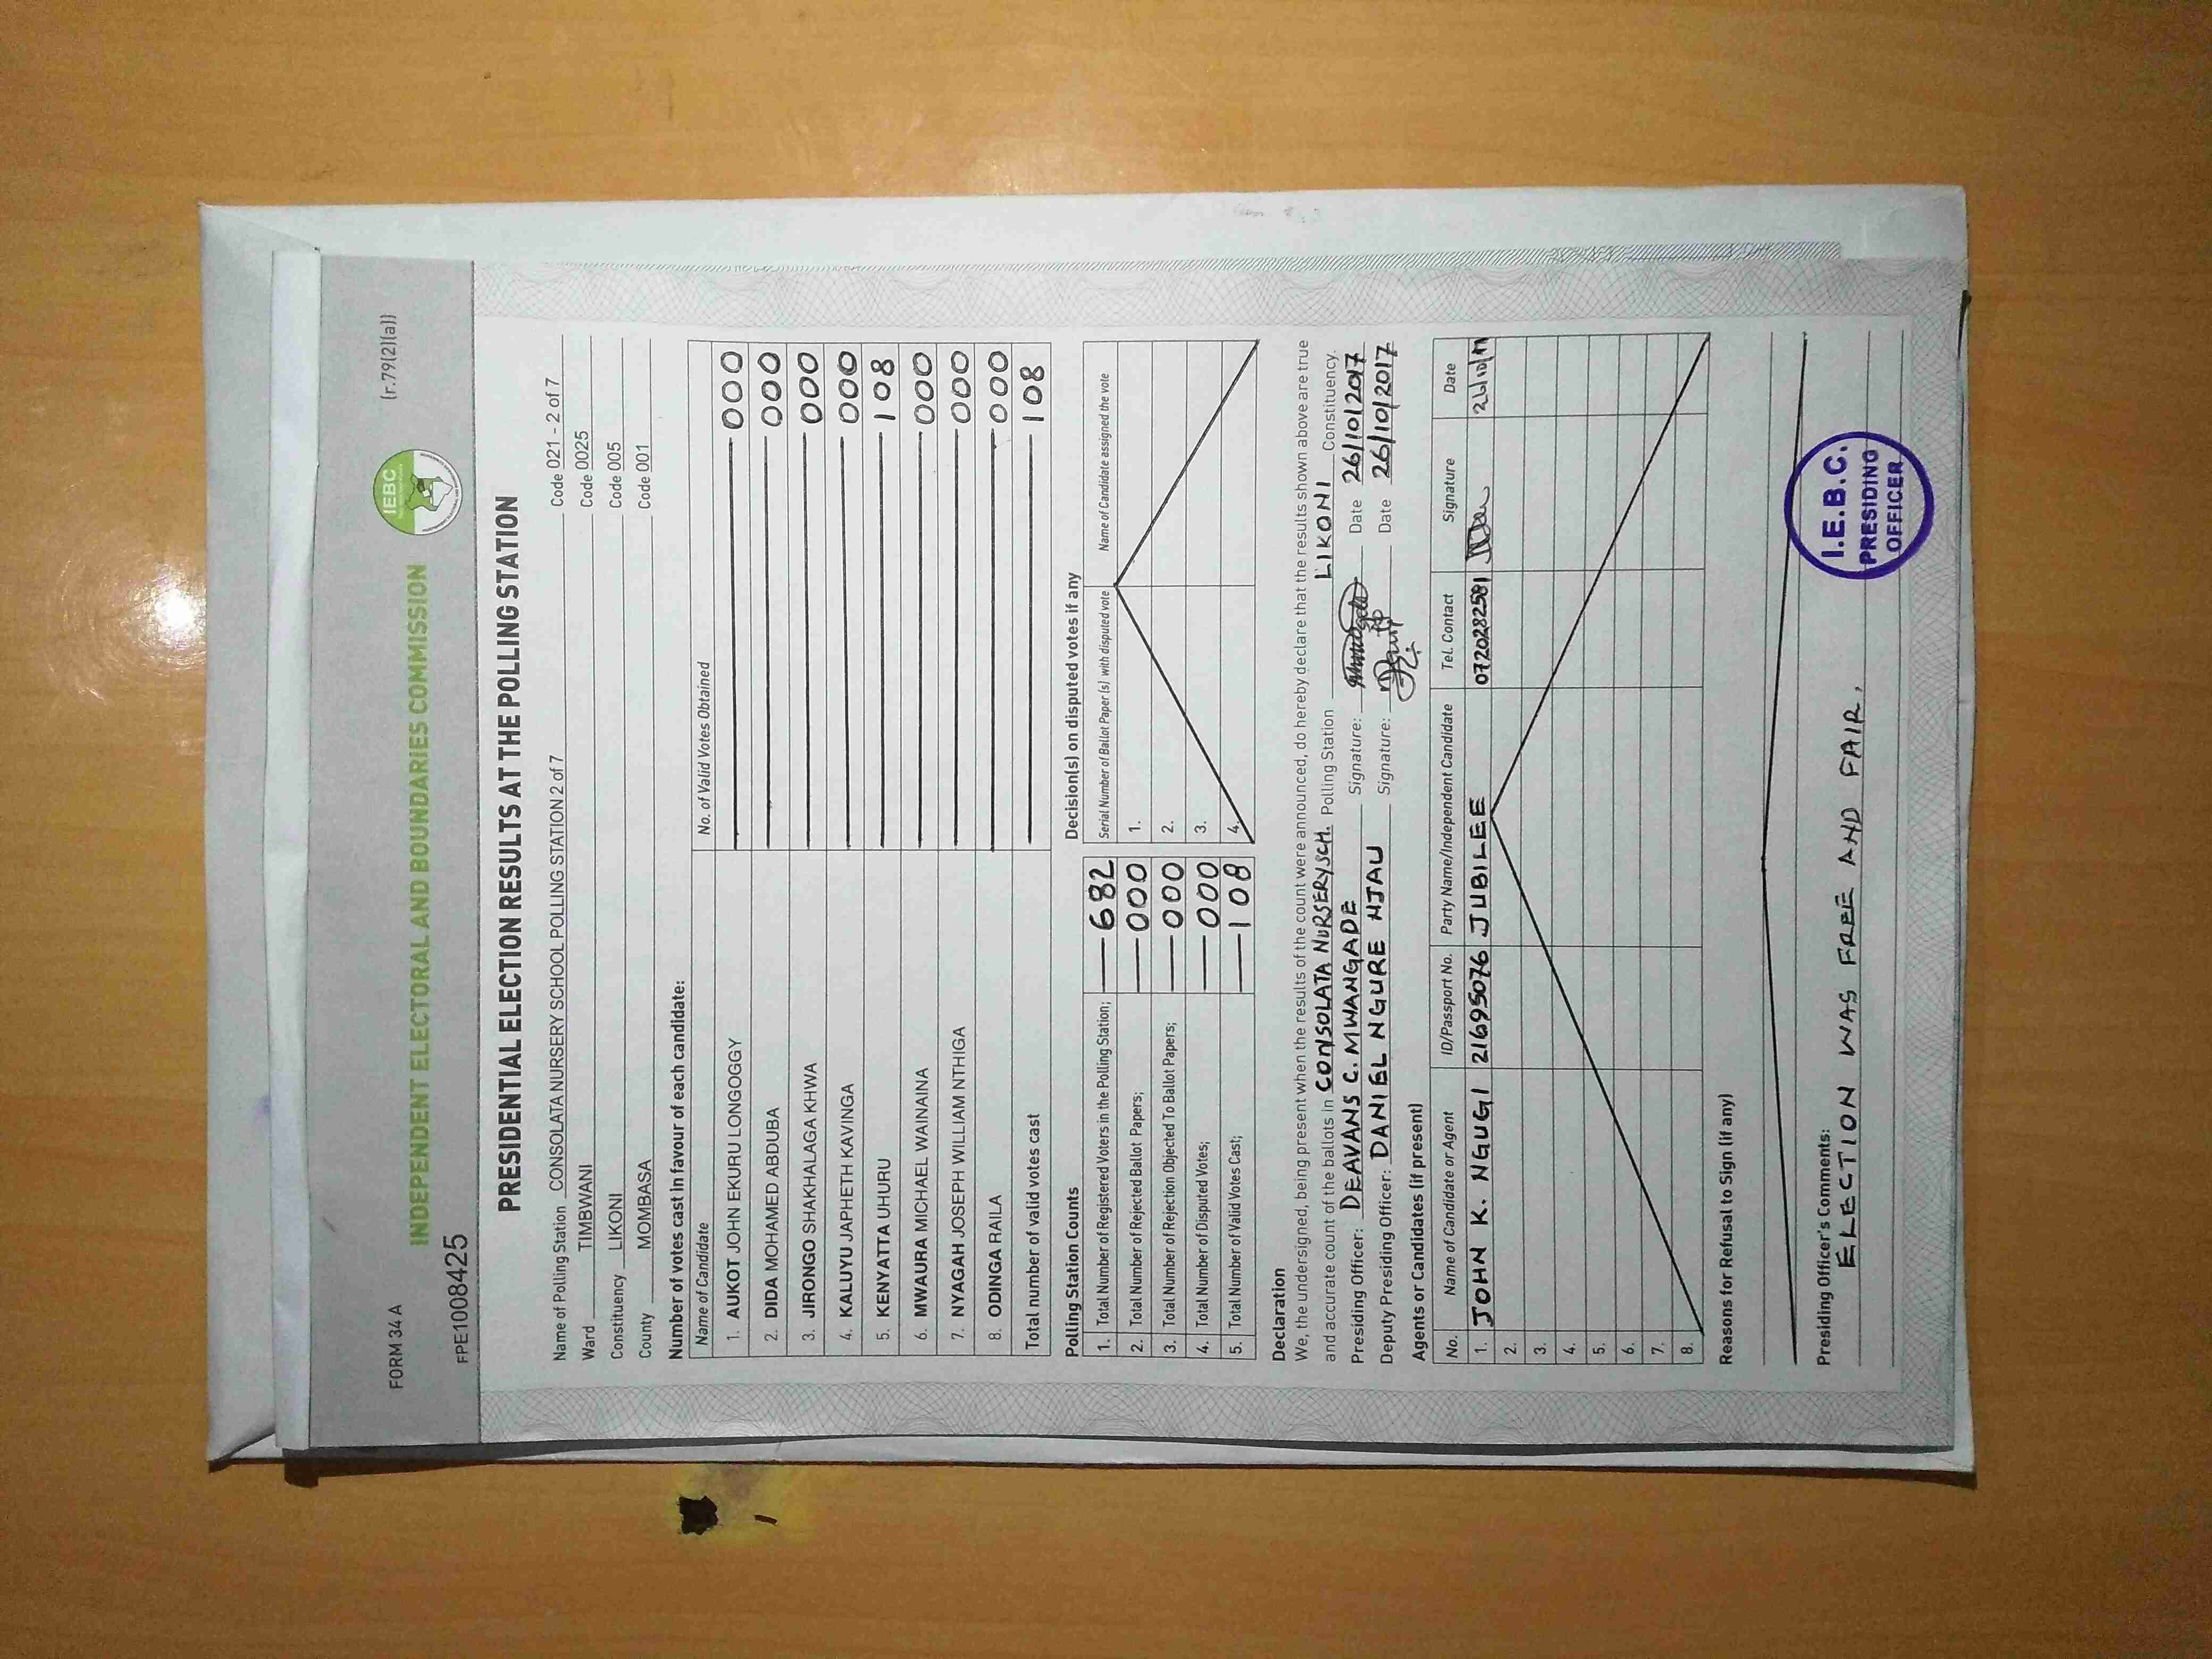 FORM 34 A
(r.79(2)(a))
IEBC
INDEPENDENT ELECTORAL AND BOUNDARIES COMMISSION
FPE1008425
PRESIDENTIAL ELECTION RESULTS AT THE POLLING STATION
Name of Polling Station CONSOLATA NURSERY SCHOOL POLLING STATION 2 of 7 Code 021 - 2 of 7
Ward TIMBWANI Code 0025
Constituency LIKONI Code 005
County MOMBASA Code 001
Number of votes cast in favour of each candidate:
Name of Candidate No. of Valid Votes Obtained
1. AUKOT JOHN EKURU LONGOGGY 000
2. DIDA MOHAMED ABDUBA 000
3. JIRONGO SHAKHALAGA KHWA 000
4. KALUYU JAPHETH KAVINGA 000
5. KENYATTA UHURU 108
6. MWAURA MICHAEL WAINAINA 000
7. NYAGAH JOSEPH WILLIAM NTHIGA 000
8. ODINGA RAILA 000
Total number of valid votes cast 108
Polling Station Counts
1. Total Number of Registered Voters in the Polling Station; 682
2. Total Number of Rejected Ballot Papers; 000
3. Total Number of Rejection Objected To Ballot Papers; 000
4. Total Number of Disputed Votes; 000
5. Total Number of Valid Votes Cast; 108
Decision(s) on disputed votes if any
Serial Number of Ballot Paper (s) with disputed vote Name of Candidate assigned the vote
1.
2.
3.
4.
Declaration
We, the undersigned, being present when the results of the count were announced, do hereby declare that the results shown above are true
and accurate count of the ballots in CONSOLATA NURSERY SCH. Polling Station LIKONI Constituency.
Presiding Officer: DEAVANS C. MWANGADE Signature: Date 26/10/2017
Deputy Presiding Officer: DANIEL NGURE NJAU Signature: Date 26/10/2017
Agents or Candidates (if present)
No. Name of Candidate or Agent ID/Passport No. Party Name/Independent Candidate Tel. Contact Signature Date
1. JOHN K. NGUGI 21695076 JUBILEE 0720282581 26/10/17
2.
3.
4.
5.
6.
7.
8.
Reasons for Refusal to Sign (if any)
Presiding Officer's Comments:
ELECTION WAS FREE AND FAIR.
I.E.B.C.
PRESIDING
OFFICER